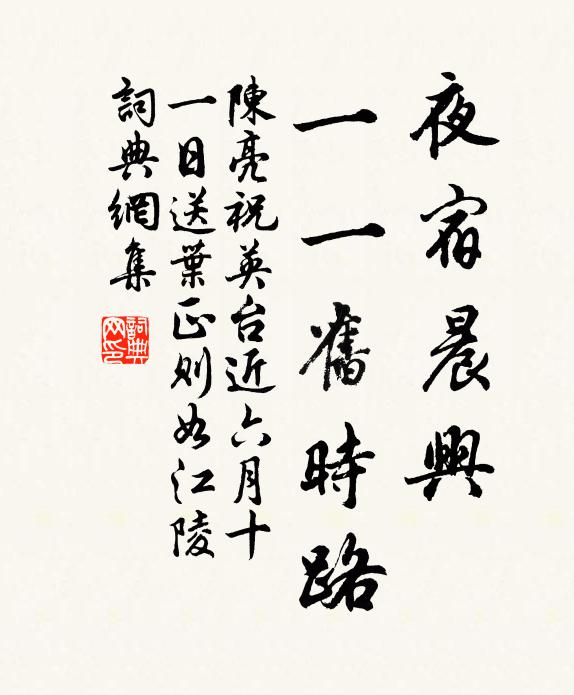 夜宿晨興
一一舊時路
陳亮祝英台近六月十
一日送葉正則如江陵
詞典網集
詞典網印